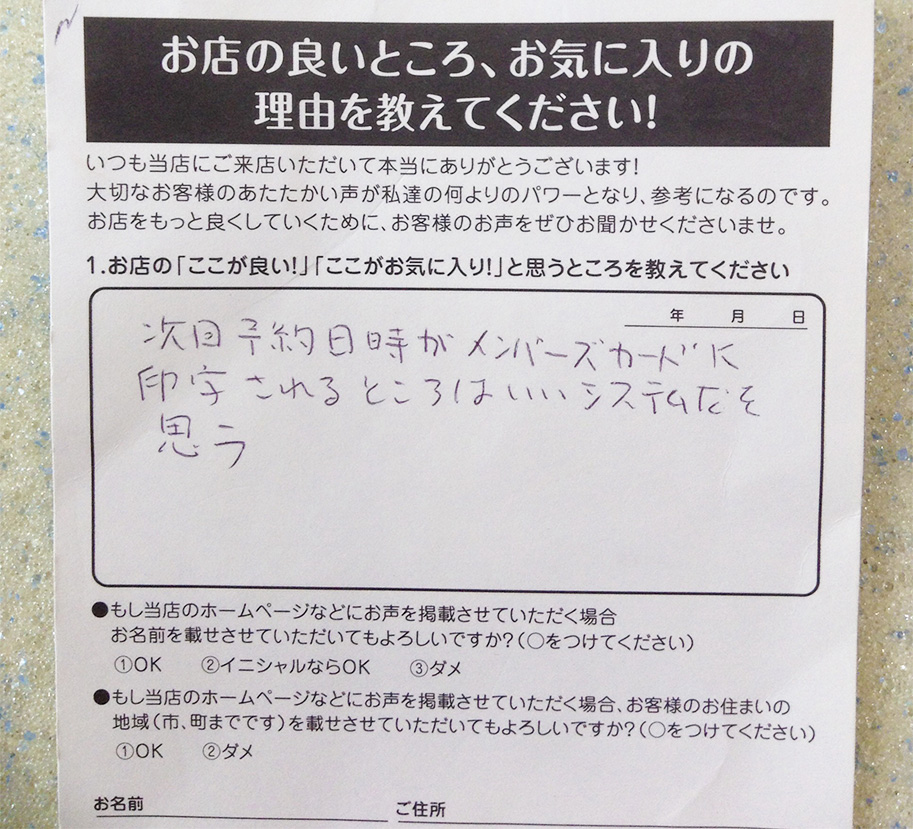 お店の良いところ、お気に入りの
理由を教えてください!
いつも当店にご来店いただいて本当にありがとうございます!
大切なお客様のあたたかい声が私達の何よりのパワーとなり、参考になるのです。
お店をもっと良くしていくために、お客様のお声をぜひお聞かせくださいませ。
1.お店の「ここが良い!」「ここがお気に入り!」と思うところを教えてください
年 月 日
次回予約日時がメンバーズカードに
印字されるところはいいシステムだと
思う
●もし当店のホームページなどにお声を掲載させていただく場合
お名前を載せさせていただいてもよろしいですか?(○をつけてください)
①OK ②イニシャルならOK ③ダメ
●もし当店のホームページなどにお声を掲載させていただく場合、お客様のお住まいの
地域(市、町までです)を載せさせていただいてもよろしいですか?(○をつけてください)
①OK ②ダメ
お名前 ご住所